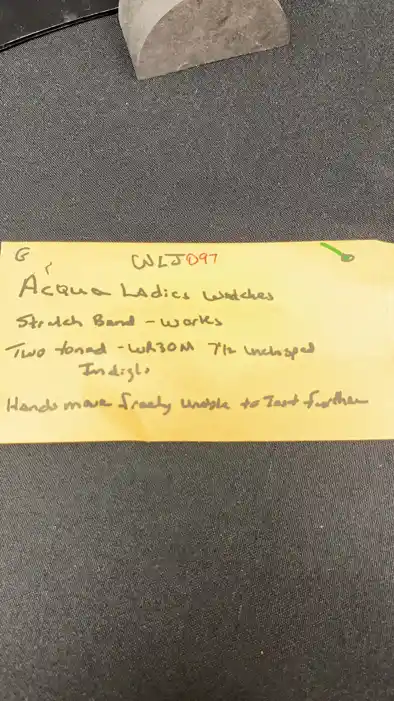 G WLJ097
Acqua Ladies Watches
Stretch Band - Works
Two toned - WR30M 7½ unclasped
Indiglo
Hands move freely unable to Test further